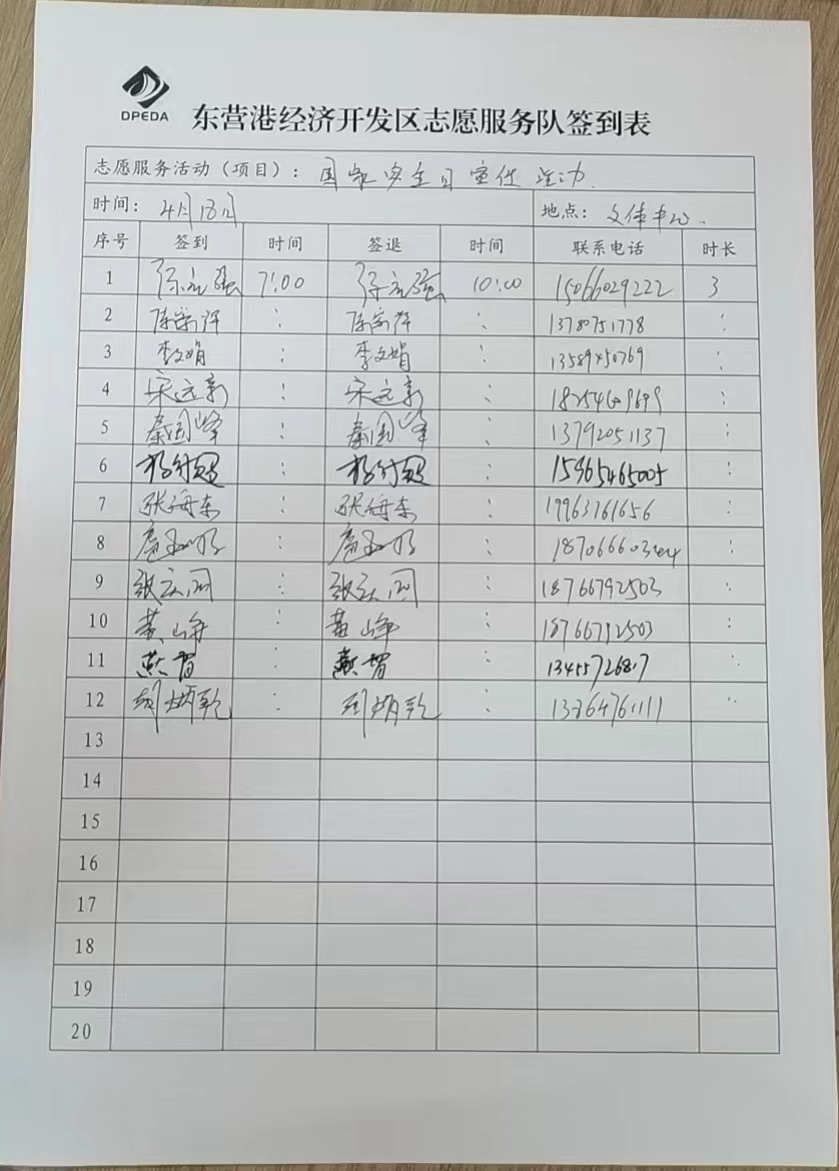 DPEDA
东营港经济开发区志愿服务队签到表
志愿服务活动（项目）：国家安全日宣传活动.
时间：4月18日 地点：文体中心.
序号 签到 时间 签退 时间 联系电话 时长
1 7:00 10:00 15066029222 3
2 陈宗祥 : 陈宗祥 : 13780751778 :
3 李文娟 : 李文娟 : 13589450769 :
4 宋远新 : 宋远新 : :
5 秦国峰 : 秦国峰 : 13792051137 :
6 : : 15965465005 :
7 张海东 : 张海东 : 19963761656 :
8 : : :
9 张庆同 : 张庆同 : 18766792503 :
10 黄峥 : 黄峥 : 18766792503 :
11 燕智 : 燕智 : 13455726817 :
12 刘炳乾 : 刘炳乾 : 13864761111 :
13
14
15
16
17
18
19
20